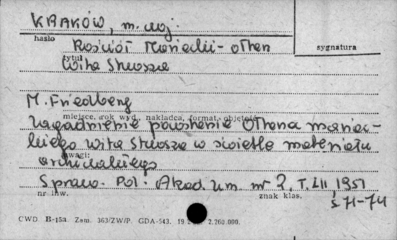 KRAKÓW, m. woj.
hasło
Kościół Mariacki - ołtarz
sygnatura
tytuł
Wita Stwosza
M. Friedberg
miejsce, rok wyd., nakładca, format, objętość
Zagadnienie powstania ołtarza mariac-
kiego Wita Stwosza w świetle materiału
uwagi:
archiwalnego
Spraw. Pol. Akad. Um. nr 2, T. LII, 1951
nr inw.
znak klas.
s. 71-74
CWD. B-18a. Zam. 363/ZW/P. GDA-543. 2.260.000.